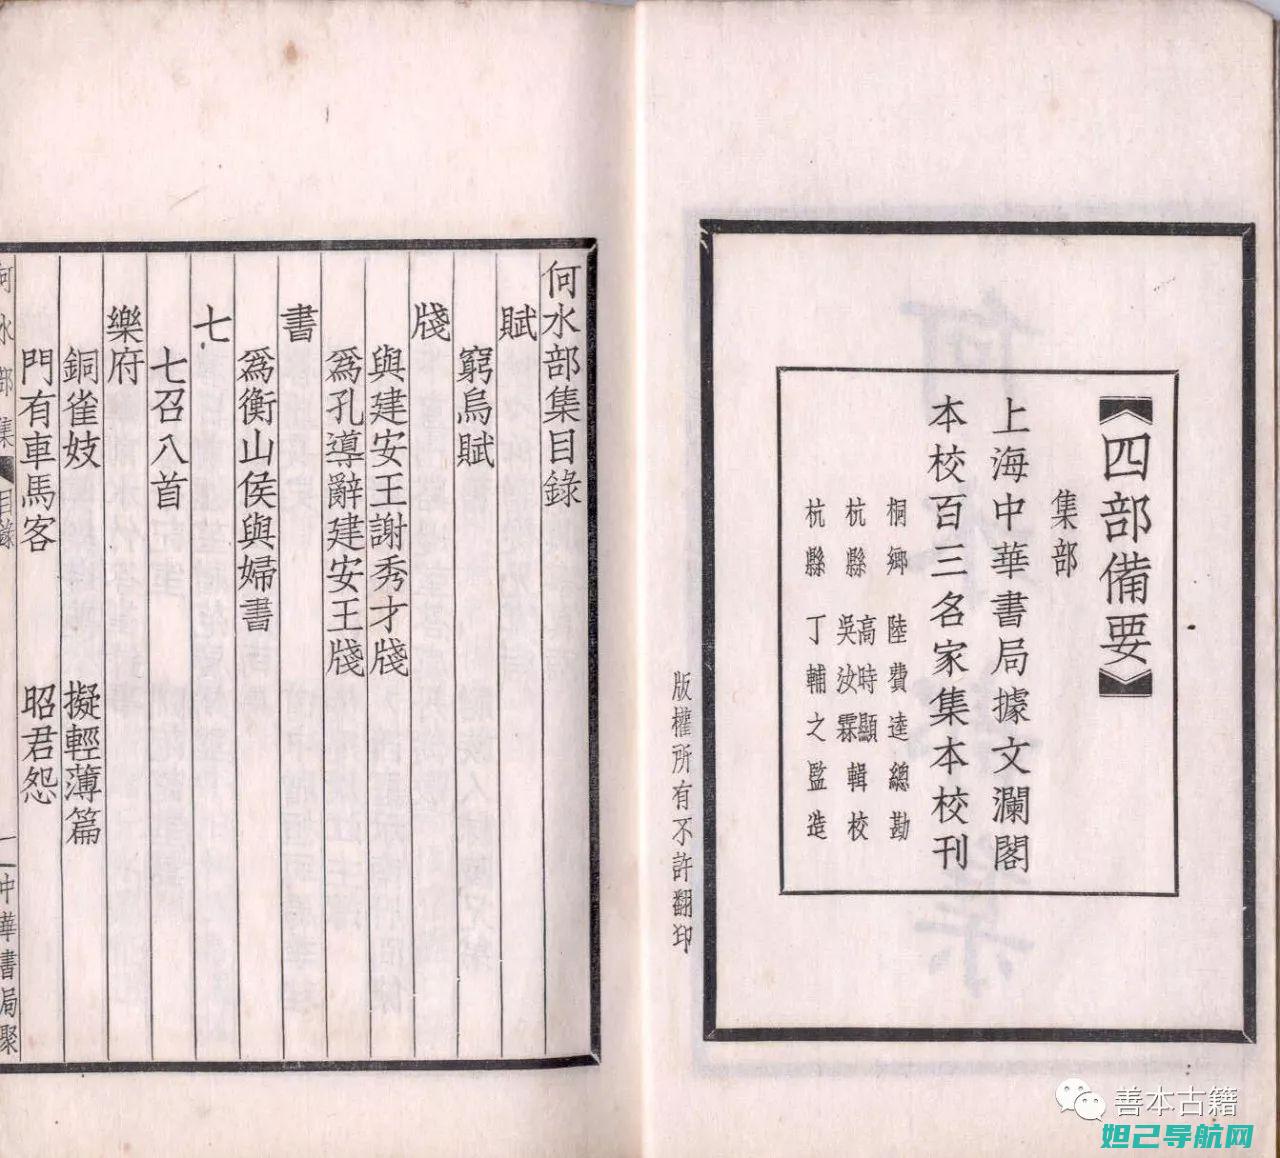 《四部備要》
集部
上海中華書局據文瀾閣
本校百三名家集本校刊
桐鄉 陸費逵總勘
杭縣 高時顯 吳汝霖 輯校
杭縣 丁輔之監造
版權所有不許翻印
何水部集目錄
賦
窮烏賦
牋
與建安王謝秀才牋
爲孔導辭建安王牋
書
爲衡山侯與婦書
七
七召八首
樂府
銅雀妓 擬輕薄篇
門有車馬客 昭君怨
何水部集 目錄 一 中華書局聚
善本古籍
妲己导航网